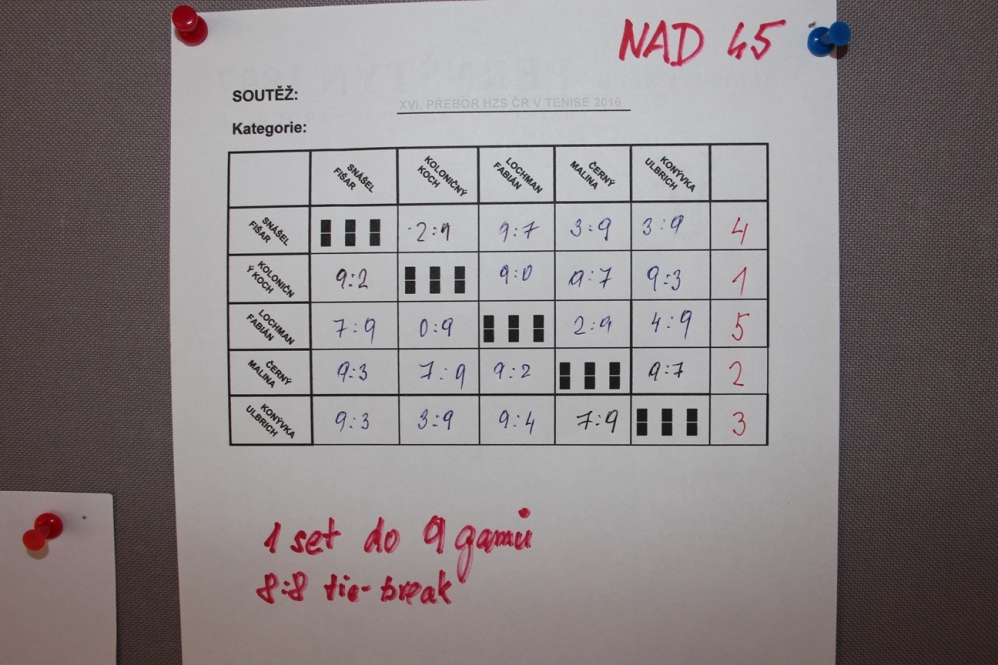 NAD 45
SOUTĚŽ:
XVI. PŘEBOR HZS ČR V TENISE 2016
Kategorie:
SNÁŠEL FIŠAR KOLONIČNÝ KOCH LOCHMAN FABIÁN ČERNÝ MALINA KONÝVKA ULBRICH
SNÁŠEL FIŠAR 2:9 9:7 3:9 3:9 4
KOLONIČN Ý KOCH 9:2 9:0 9:7 9:3 1
LOCHMAN FABIÁN 7:9 0:9 2:9 4:9 5
ČERNÝ MALINA 9:3 7:9 9:2 9:7 2
KONÝVKA ULBRICH 9:3 3:9 9:4 7:9 3
1 set do 9 gamů
8:8 tie-break